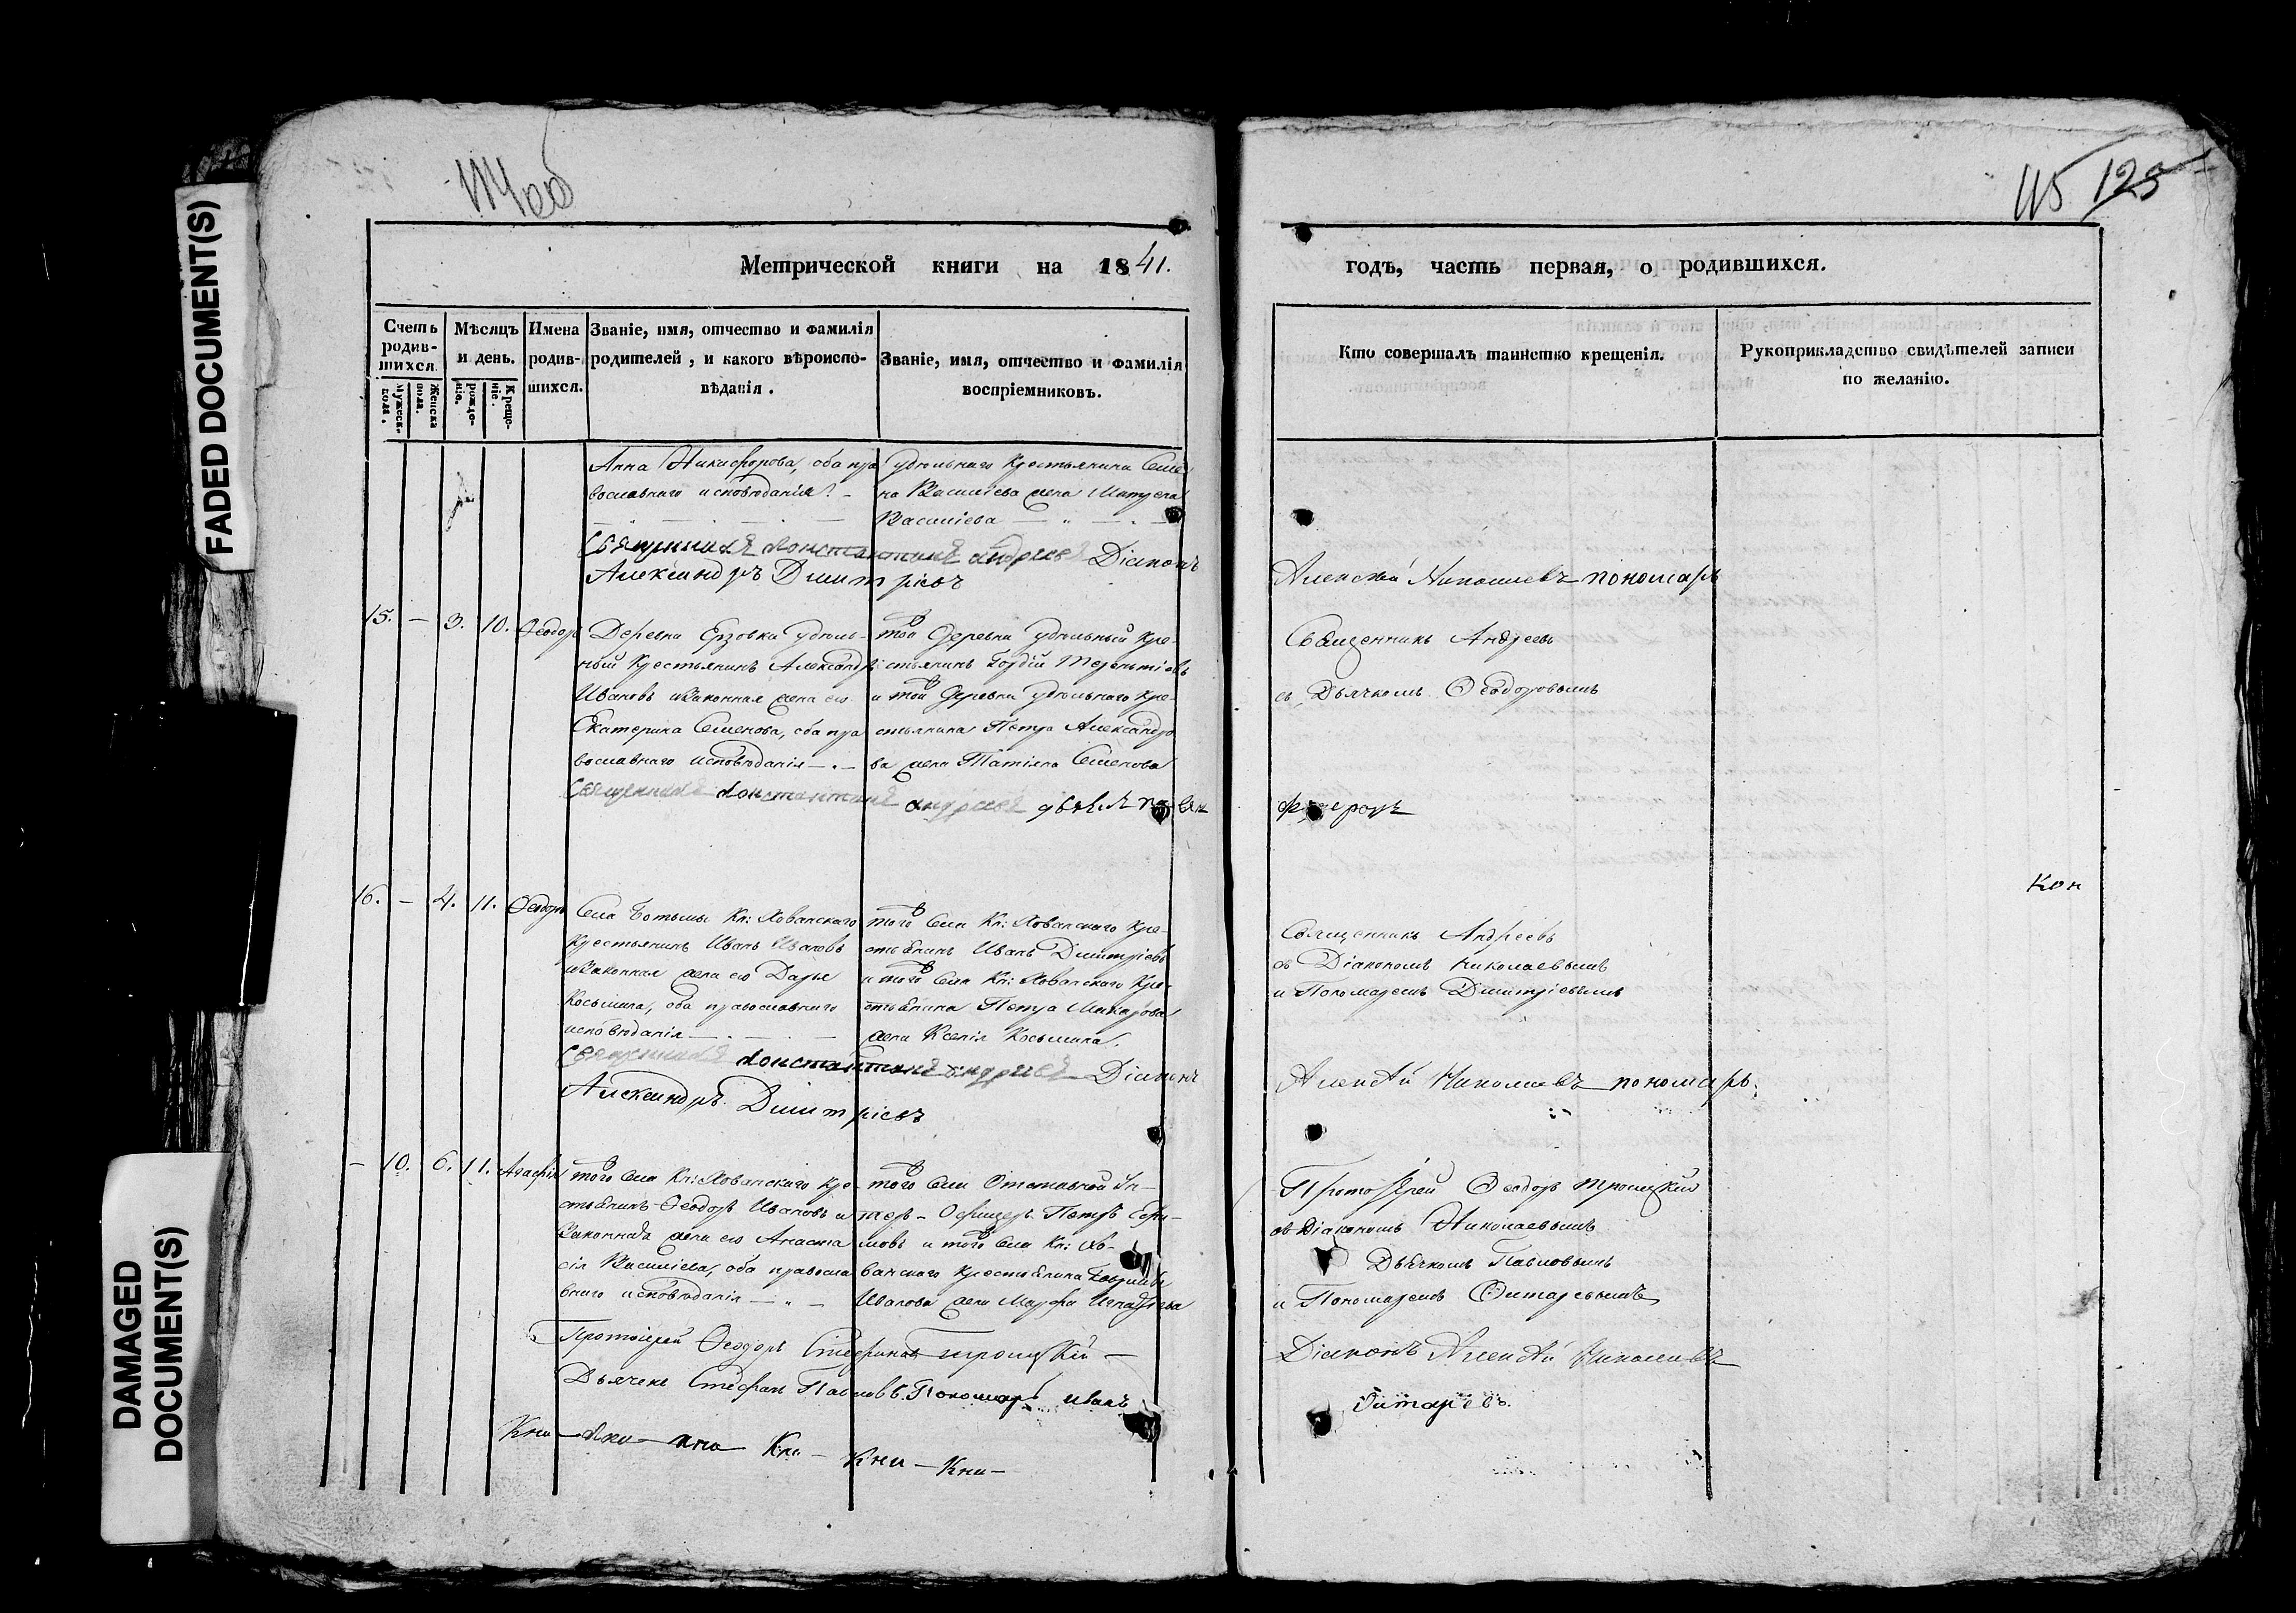 FADED DOCUMENT(S)
DAMAGED
DOCUMENT(S)
114об
115 125
Метрической книги на 1841.
годъ, часть первая, о родившихся.
Счетъ
родив-
шихся.
Мужеска
пола.
Женска
пола.
Мѣсяцъ
и день.
рожде-
ніе.
Креще-
ніе.
Имена
родив-
шихся.
Званіе, имя, отчество и фамилія
родителей, и какого вѣроиспо-
вѣданія.
Званіе, имя, отчество и фамилія
воспріемниковъ.
Кто совершалъ таинство крещенія.
Рукоприкладство свидѣтелей записи
по желанію.
Анна Никифорова, оба пра
вославнаго исповѣданія. –
удѣльнаго крестьянина Семе
на Василіева жена
Василіева
Священникъ Константинъ Андреевъ Діаконъ
Александръ Димитріевъ
Алексѣй Николаевъ пономарь
15. – 3. 10. Ѳеодоръ
Деревни Ерзовки удѣль-
ный крестьянинъ Александръ
Ивановъ и законная жена его
Екатерина Семенова, оба пра
вославнаго исповѣданія – . –
той деревни удѣльный кре-
стьянинъ Гордій Терентіевъ
и той деревни удѣльнаго кре-
стьянина Петра Александро
ва жена Татіана Семенова
Священникъ Андреевъ
съ Дьячкомъ Ѳеодоровымъ
Священникъ Константинъ Андреевъ
Кон
16. – 4. 11. Ѳеодоръ
Села Ботьмы Кн: Хованскаго
крестьянинъ Иванъ Ивановъ
и законная жена его Дарья
Косьмина, оба православнаго
исповѣданія
того села Кн: Хованскаго кре-
стьянинъ Иванъ Димитріевъ
и того села Кн: Хованскаго кре-
стьянина Петра Макарова
жена Ксенія Косьмина.
Священникъ Андреевъ
съ Діакономъ Николаевымъ
и Пономаремъ Димитріевымъ
Священникъ Константинъ Андреевъ Діаконъ
Александръ Димитріевъ
Алексѣй Николаевъ пономарь.
– 10. 6. 11. Агафія
того села Кн: Хованскаго кре-
стьянинъ Ѳеодоръ Ивановъ и
законная жена его Анаста
сія Василіева, оба правосла
внаго исповѣданія – „ –
того села Отставной Ун-
теръ-Офицеръ Петръ Ефи-
мовъ и того села Кн: Хо-
ванскаго крестьянина Гавріила
Иванова жена Марфа Игнатіева
Протоіерей Ѳеодоръ Троицкій
съ Діакономъ Николаевымъ
Дьячкомъ Павловымъ
и Пономаремъ
Протоіерей Ѳеодоръ Троицкій –
Діаконъ Алексѣй Николаевъ
Дьячекъ Стефанъ Павловъ. Пономарь Иванъ
Кни – Кни – Кни – Кни –